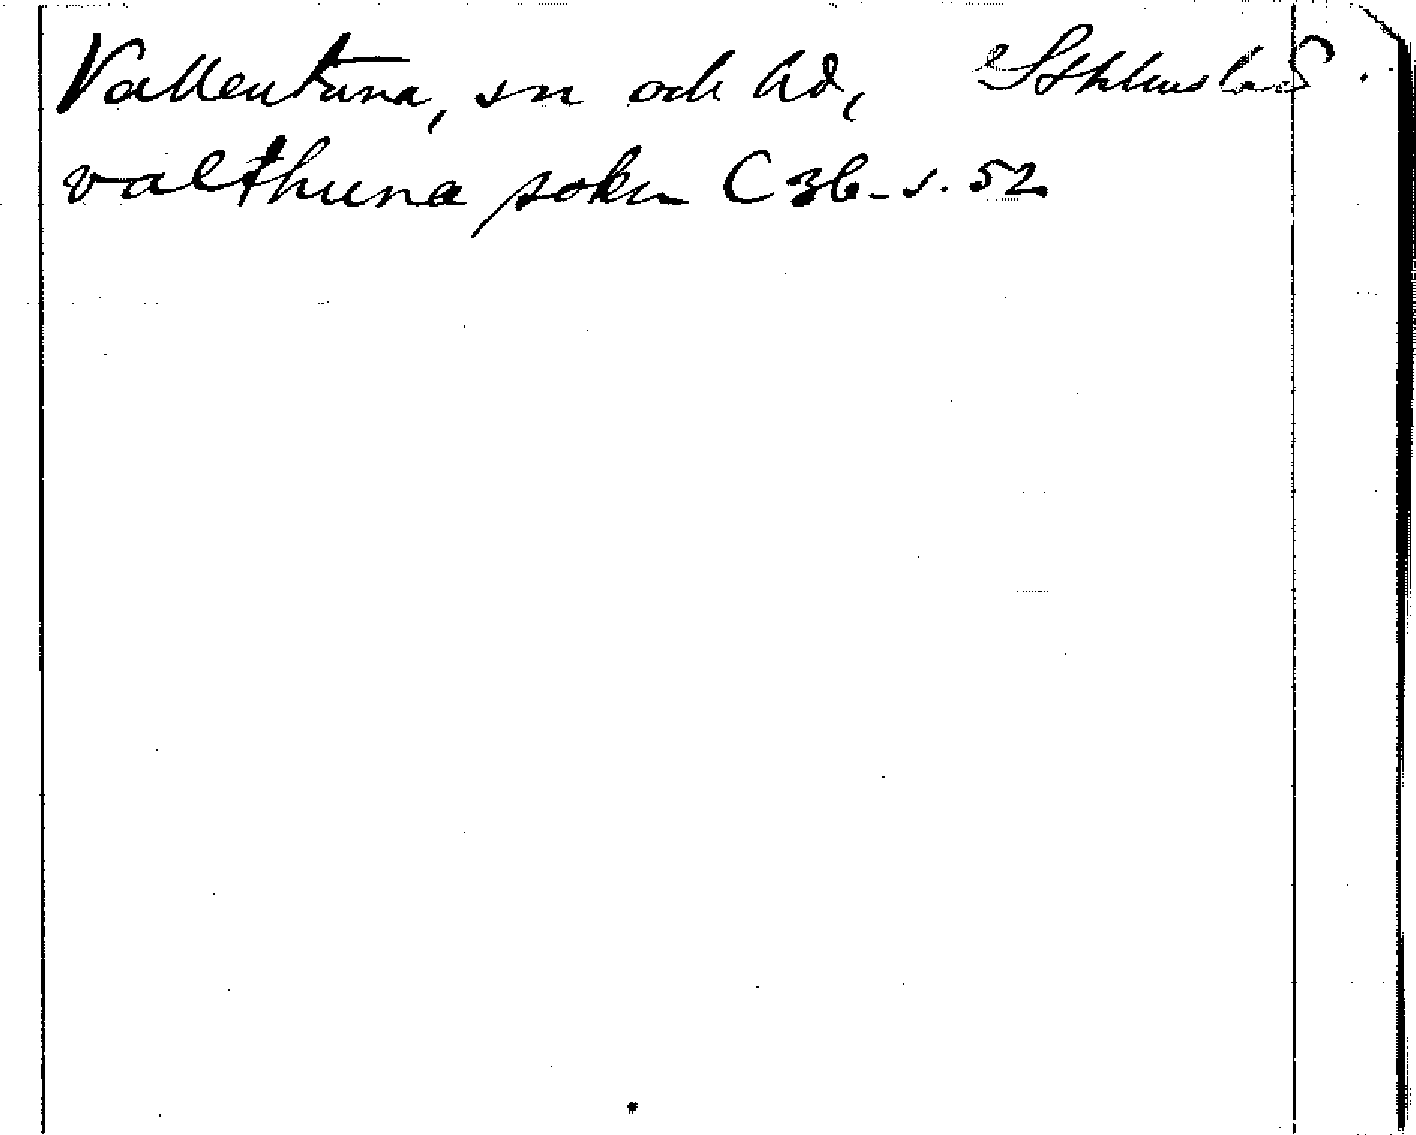 Vallentuna, sn och hd, Sthlms län
valthuna sokn C 36 s. 52